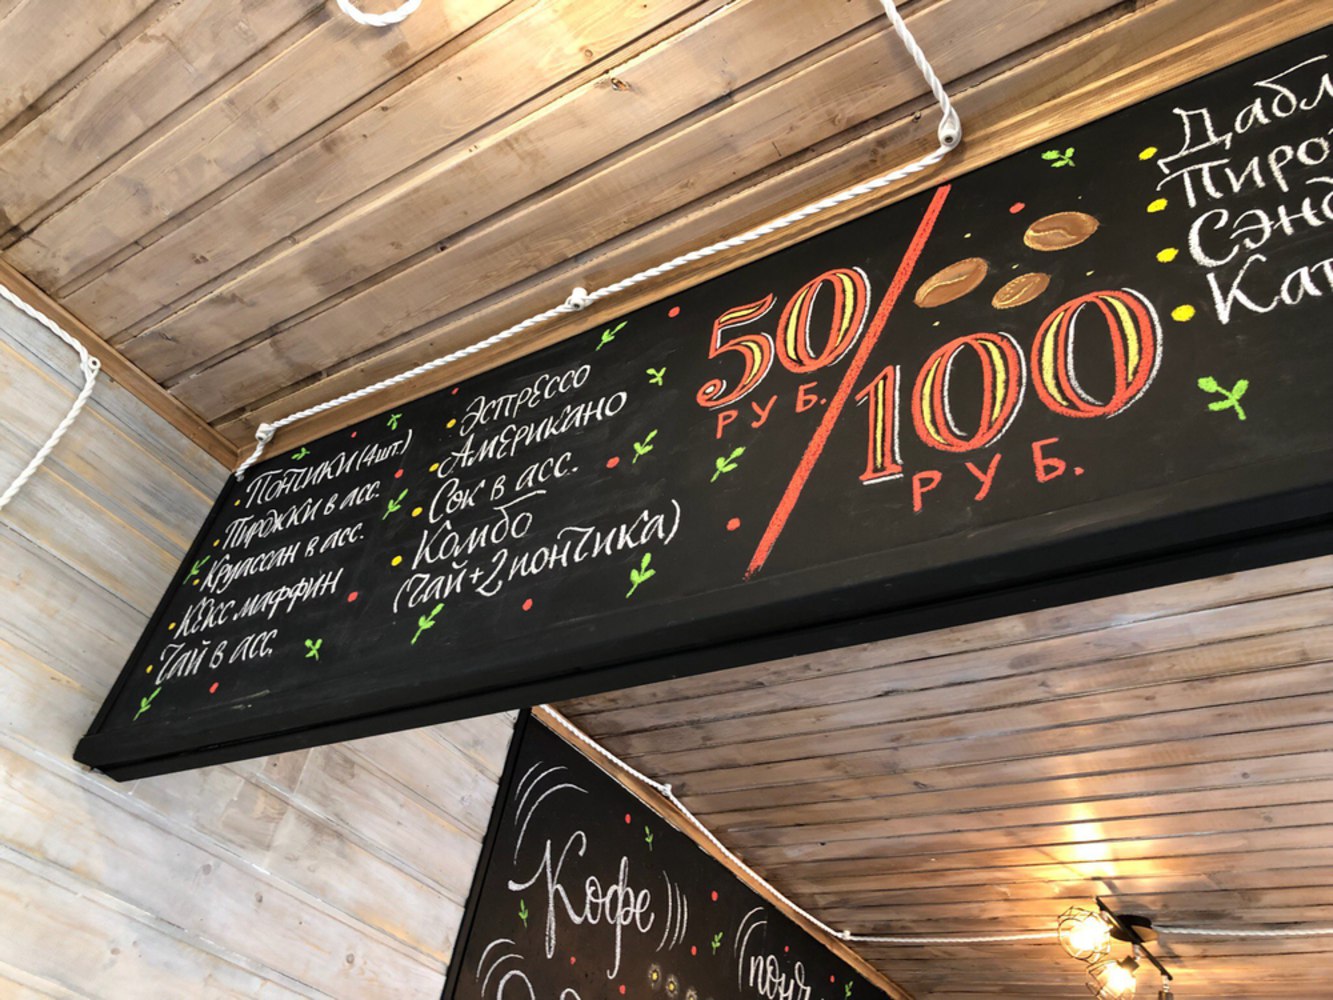 Пончики (4шт.)
Пирожки в асс.
Круассан в асс.
Кекс маффин
Чай в асс.
Эспрессо
Американо
Сок в асс.
Комбо
(Чай+2 пончика)
50
РУБ.
/
100
РУБ.
Кофе